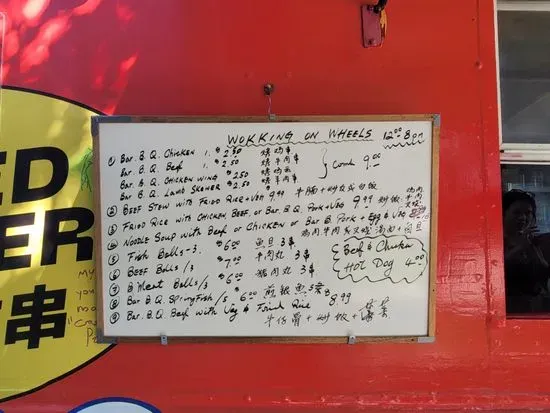 WOKKING ON WHEELS 12:00-8 pm
① Bar. B.Q. Chicken 1. $2.50 烧鸡串
Bar. B.Q. Beef 1. 2.50 烧牛肉串
Bar. B.Q. CHICKEN WING $2.50
Bar B.Q LAMB SKEWER $2.50 烧羊肉串
Comb 9.00
② BEEF STEW WITH FRIED RICE + VEG 9.99 牛腩+炒饭
③ FRIED RICE WITH CHICKEN BEEF, OR BAR B.Q. PORK + VEG 9.99 炒饭
④ NOODLE SOUP WITH BEEF OR CHICKEN OR BAR B. PORK + EGG & VEG
⑤ FISH BALLS-3. $6.00 魚旦 3串
⑥ BEEF BALLS /3 $7.00 牛肉丸 3串
⑦ MEAT BALLS/3 $6.00 猪肉丸 3串
⑧ BAR B.Q. SPRINGFISH /5 $6.00 煎銀魚 5条
⑨ BAR. B.Q. BEEF WITH VEG & FRIED RICE 8.99
牛仔骨+炒饭+
BEEF & CHICKEN
HOT DOG 4.00
ED
ER
串
my
you